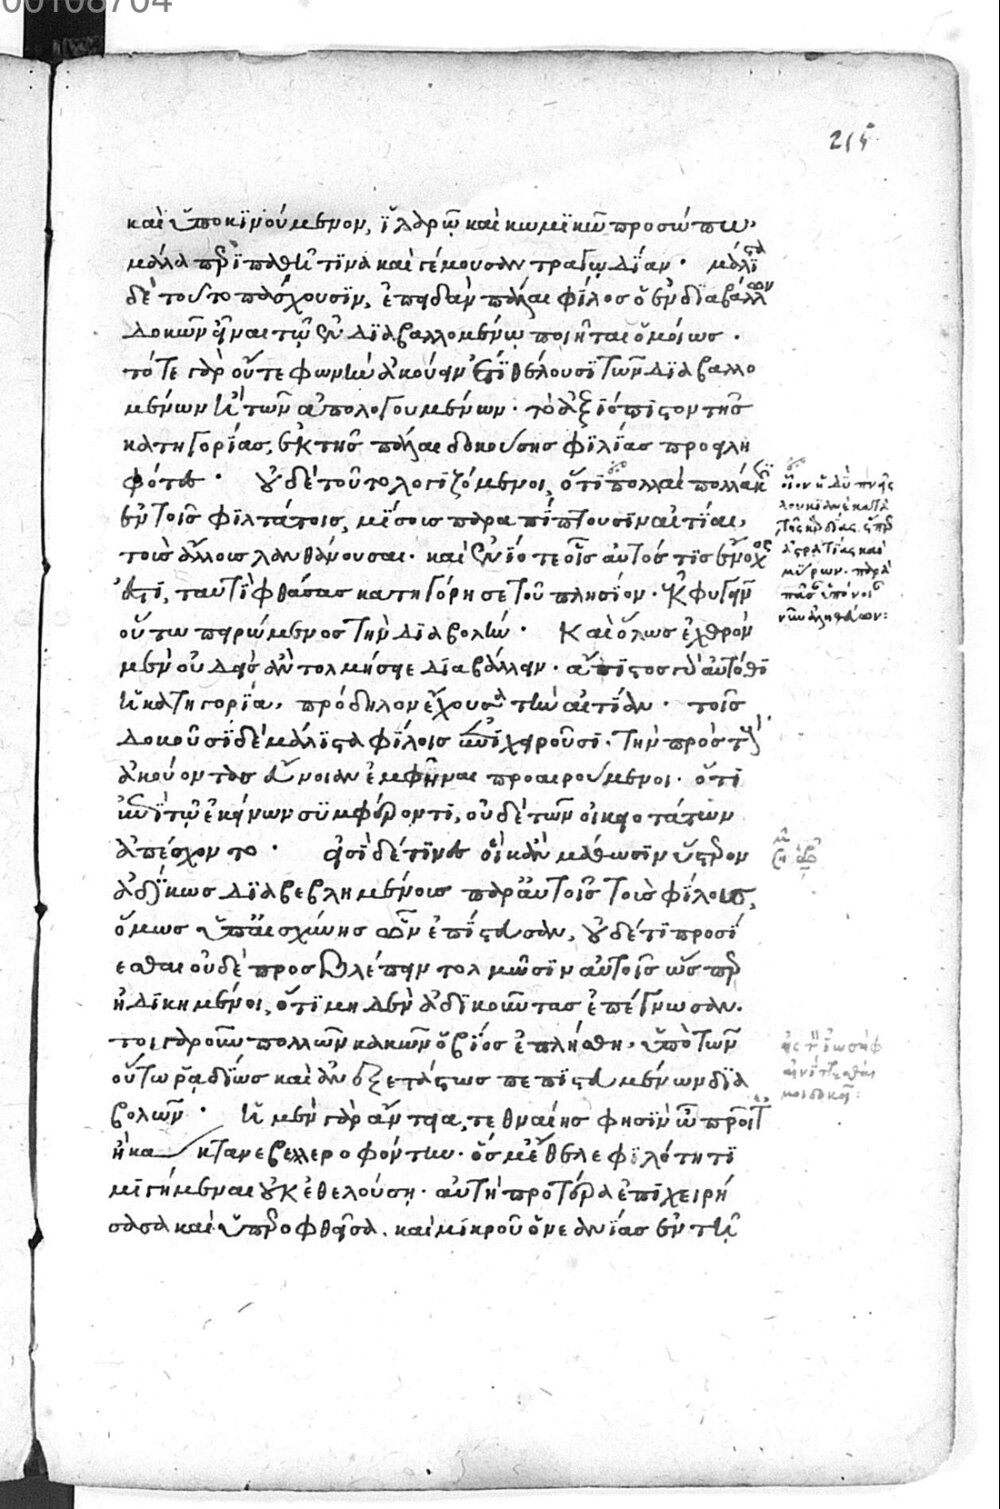 00108704
215
καὶ ὑποκινούμενον, ἱλαρῷ καὶ κωμικῷ προσώπῳ,
μάλα περιπαθῆ τινα καὶ γέμουσαν τραγῳδίαν· μάλιστα
δὲ τοῦτο πάσχουσιν, ἐπειδὰν πάλαι φίλος ὁ ἐνδιαβάλλων
δοκῶν εἶναι τῷ ἐνδιαβαλλομένῳ ποιῆται ὅμοίως·
τότε γὰρ οὔτε φωνὴν ἀκούειν ἔτι θέλουσι τῶν διαβαλλο
μένων ἢ τῶν ἀπολογουμένων· τὸ ἀξιόπιστον τῆς
κατηγορίας, ἐκ τῆς πάλαι δοκούσης φιλίας προειλη
φότες· οὐδὲ τοῦτο λογιζόμενοι, ὅτι πολλαὶ πολλάκις
ἐν τοῖς φιλτάτοις, μίσους παραπίπτουσιν αἰτίαι,
τοὺς ἄλλους λανθάνουσαι· καὶ ἐνίοτε οἷς αὐτός τις ἔνοχός
ἐστι, ταῦτα φθάσας κατηγόρησε τοῦ πλησίον· ἐκφυγεῖν
οὕτω πειρώμενος τὴν διαβολήν· καὶ ὅλως ἐχθρὸν
μὲν οὐδεὶς ἂν τολμήσειε διαβάλλειν· ἄπιστος γὰρ αὐτόθι
ἡ κατηγορία, πρόδηλον ἔχουσα τὴν αἰτίαν· τοῖς
δοκοῦσι δὲ μάλιστα φίλοις ἐπιχειροῦσι· τὴν πρὸς τοὺς
ἀκούοντας εὔνοιαν ἐμφῆναι προαιρούμενοι· ὅτι
ἐπὶ τῷ ἐκείνων συμφέροντι, οὐδὲ τῶν οἰκειοτάτων
ἀπέσχοντο· εἰσὶ δέ τινες οἳ κἂν μάθωσιν ὕστερον
ἀδίκως διαβεβλημένους παρ' αὐτοῖς τοὺς φίλους,
ὅμως ὑπ' αἰσχύνης ὧν ἐπίστευσαν, οὐδέ τι προσί
εσθαι οὐδὲ προσβλέπειν τολμῶσιν αὐτοῖς ὥσπερ
ἠδικημένοι, ὅτι μηδὲν ἀδικοῦντας ἐπέγνωσαν.
τοιγαροῦν πολλῶν κακῶν ὁ βίος ἐπλήσθη, ὑπὸ τῶν
οὕτω ῥᾳδίως καὶ ἀνεξετάστως πεπιστευμένων δια
βολῶν· ἡ μὲν γὰρ ἄντεια, τεθναίης φησὶν ὦ προῖτ'
ἢ κα κτανε βελλεροφόντην· ὅς μ' ἔθελε φιλότητι
μιγήμεναι οὐκ ἐθελούσῃ· αὐτὴ προτέρα ἐπιχειρή
σασα καὶ ὑπεροφθεῖσα. καὶ μικροῦ ὁ νεανίας ἐν τῇ